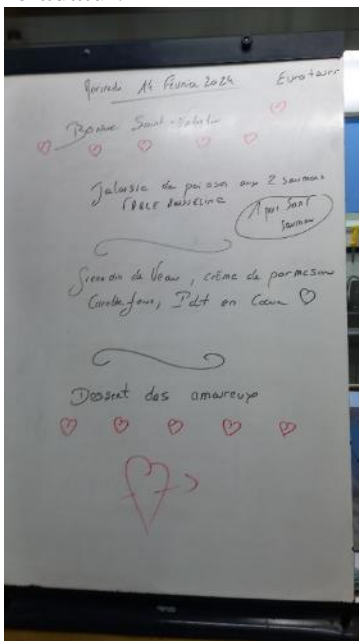 Mercredi 14 Février 2024
Eurotours
Bonne Saint-Valentin
Jalousie de poisson aux 2 saumons
1 part sans
saumon
Grenadin de Veau, crème de parmesan
Carotte fane, Pdt en Coeur
Dessert des amoureux